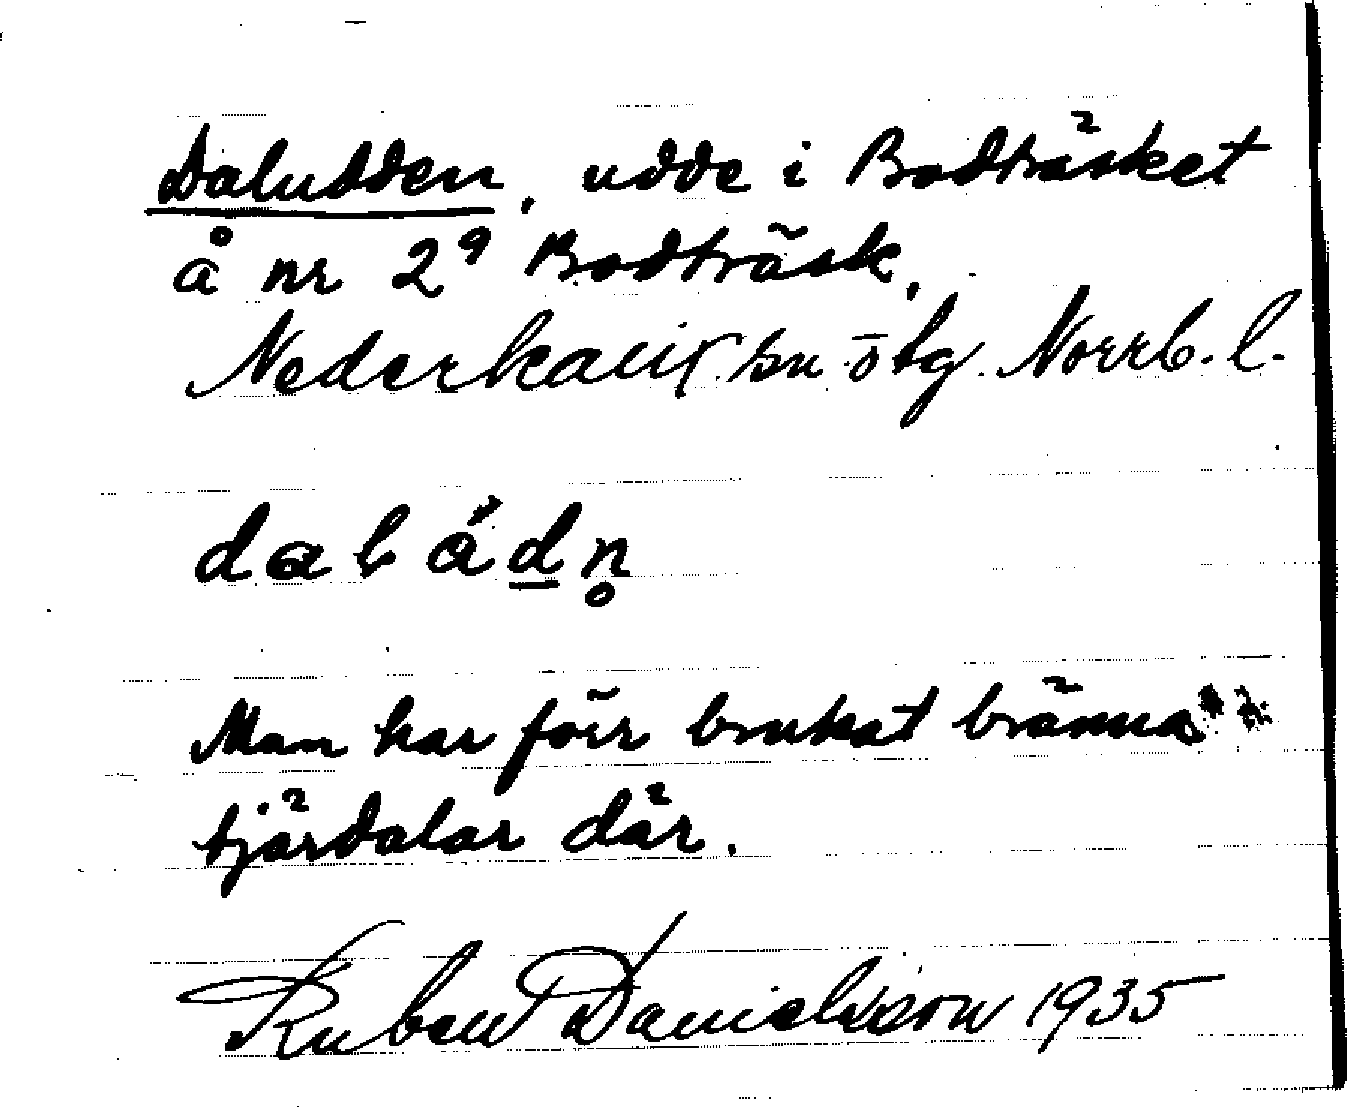 Daludden, udde i Bodträsket
å nr 2⁹ Bodträsk,
Nederkalix sn ö tg Norrb. l.
dalåd̲n̥
Man har förr brukat bränna
tjärdalar där.
Ruben Danielsson 1935